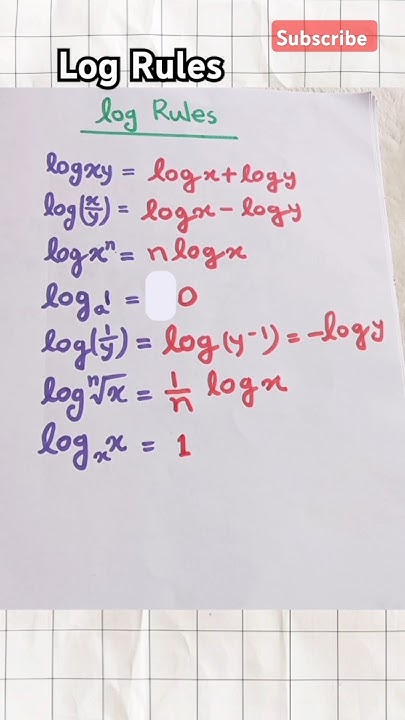 Subscribe
Log Rules
log Rules
log xy = log x + log y
log(x/y) = log x - log y
log xⁿ = n log x
logₐ1 = 0
log(1/y) = log(y-1) = -log y
log ⁿ√x = 1/n log x
logₓx = 1